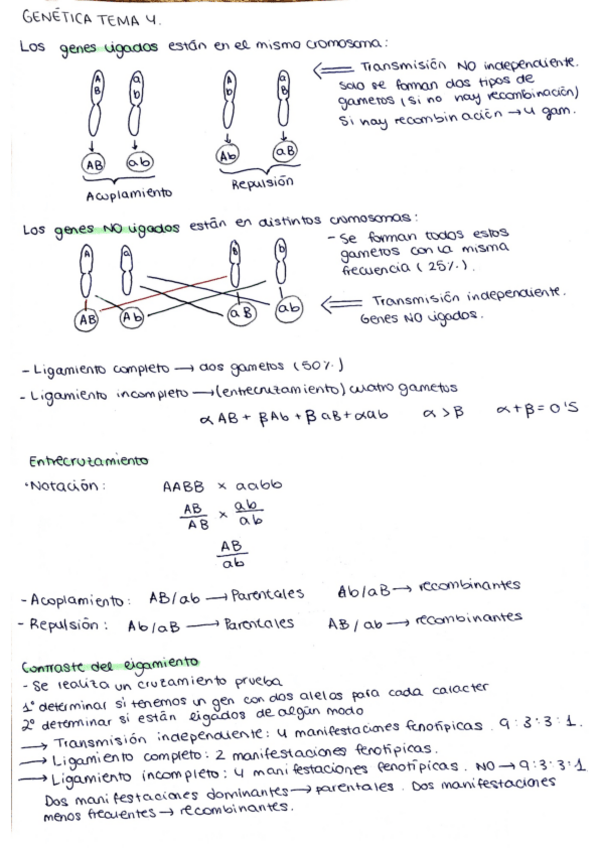 GENÉTICA TEMA 4.
Los genes ligados están en el mismo cromosoma:
A B
a b
A b
a B
⇐ Transmisión NO independiente.
Solo se forman dos tipos de
gametos (si no hay recombinación)
Si hay recombinación → 4 gam.
AB
ab
Ab
aB
Acoplamiento
Repulsión
Los genes NO ligados están en distintos cromosomas:
A
a
B
b
- Se forman todos estos
gametos con la misma
frecuencia (25%).
AB
Ab
aB
ab
⇐ Transmisión independiente.
Genes NO ligados.
- Ligamiento completo → dos gametos (50%)
- Ligamiento incompleto → (entrecruzamiento) cuatro gametos
α AB + β Ab + β aB + α ab α > β α + β = 0'5
Entrecruzamiento
·Notación: AABB × aabb
AB/AB × ab/ab
AB/ab
- Acoplamiento: AB/ab → Parentales Ab/aB → recombinantes
- Repulsión: Ab/aB → Parentales AB/ab → recombinantes
Contraste del ligamiento
- Se realiza un cruzamiento prueba
1º determinar si tenemos un gen con dos alelos para cada caracter
2º determinar si están ligados de algún modo
→ Transmisión independiente: 4 manifestaciones fenotípicas. 9:3:3:1.
→ Ligamiento completo: 2 manifestaciones fenotípicas.
→ Ligamiento incompleto: 4 manifestaciones fenotípicas. NO → 9:3:3:1
Dos manifestaciones dominantes → parentales. Dos manifestaciones
menos frecuentes → recombinantes.